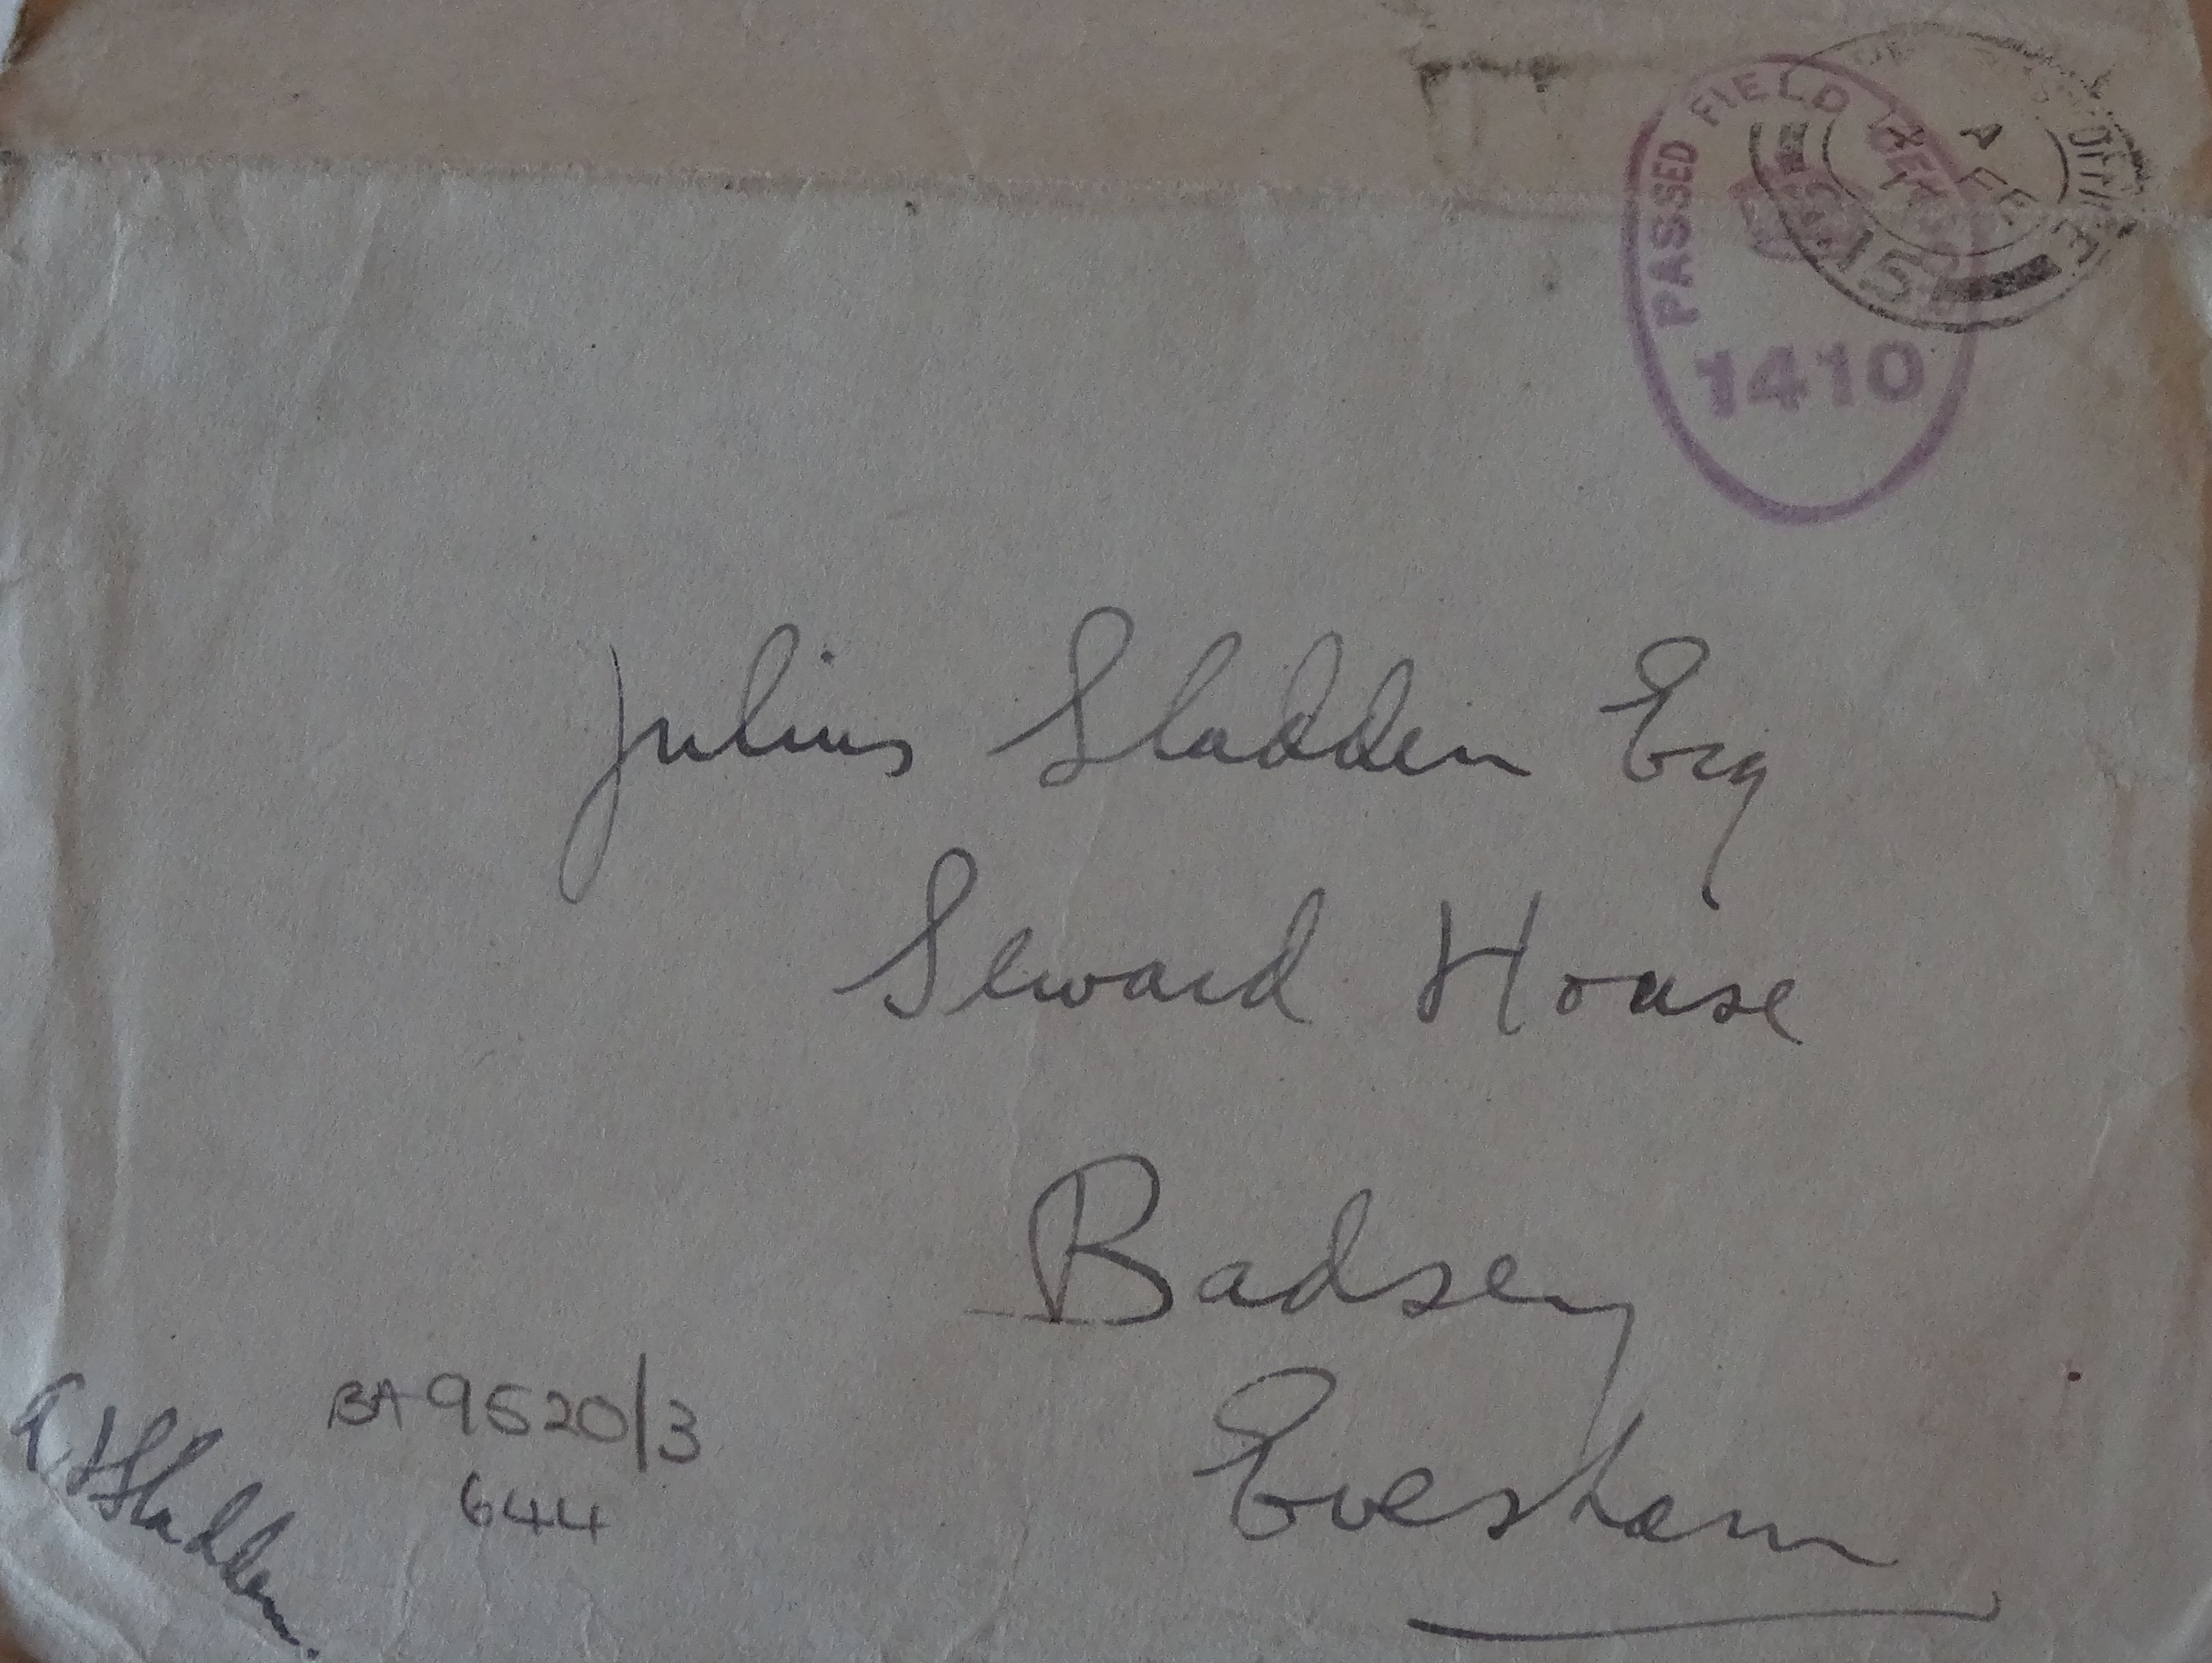 PASSED FIELD
1410
A
FE
15
Julius Sladden Esq
Seward House
Badsey
Evesham
BA 9520/3
644
Sladden.